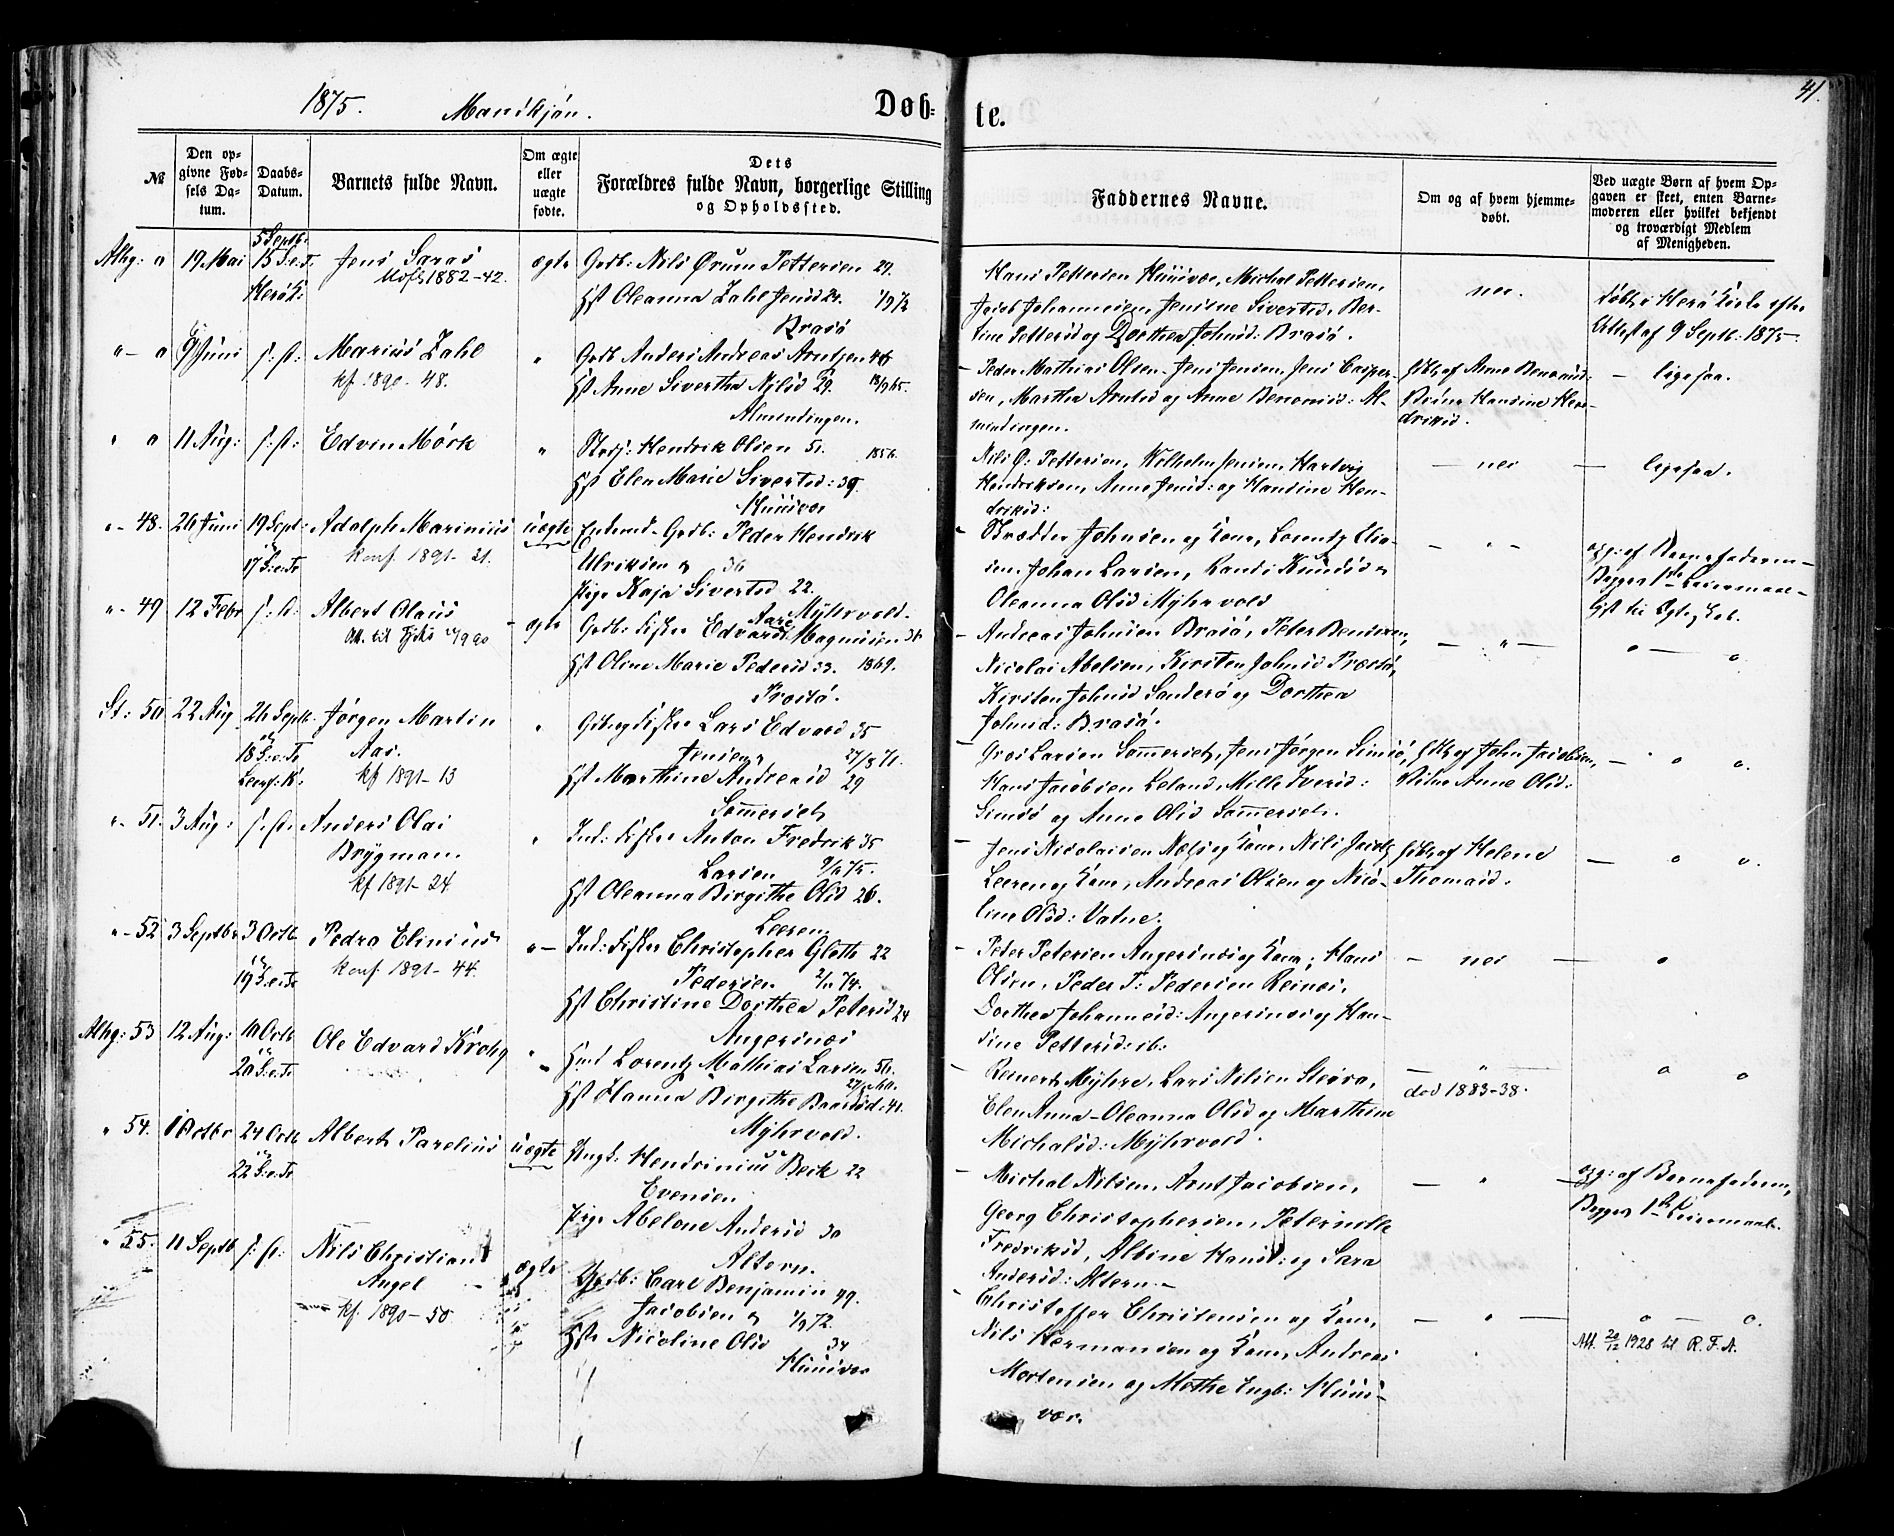 1875. Mandkjøn. Døb- te. 41.
№
Den op-
givne Fød-
sels Da-
tum.
Daabs-
Datum.
Barnets fulde Navn.
Om ægte
eller
uægte
fødte.
Dets
Forældres fulde Navn, borgerlige Stilling
og Opholdssted.
Faddernes Navne.
Om og af hvem hjemme-
døbt.
Ved uægte Børn af hvem Op-
gaven er skeet, enten Barne-
moderen eller hvilket bekjendt
og troværdigt Medlem
af Menigheden.
Alhg: a 19 Mai
5 Septb.
15 S.e.T.
Herø K:
Jens Saras
1882-42.
ægte
Grdb: Nils Ørum Pettersen 29.
Hst Oleanna Zahl Jensd 24. 1/9 72
Brasø
Hans Pettersen Huusvær, Michal Pettersen,
Jacob Johannesen, Jensine Sivertsd, Ber-
tine Pettersd og Dorthea Johnsd: Brasø.
nei.
Døbt i Herø Kirke efter
Attest af 9 Septb: 1875
" - a 9 Juni s: d: Marius Zahl
kf. 1890-48.
"
Grdb Anders Andreas Arntsen 46
Hst Anne Sivertha Nilsd 29. 18/9 65.
Almendingen.
- Peder Mathias Olsen, Jens Jensen, Jens Casper-
sen, Martha Arntsd og Anne Benonisd: Al-
mindingen.
hjdbt af Anne Benonisd:
Hansine Hen-
driksd.
- ligesaa.
" a 11 Aug: s: d: Edvin Mørk
"
Hendrik Olsen 51. 1856.
Hst Elen Marie Sivertsd: 39.
Huusvær
Nils Ø: Pettersen, Wilhelm Jensen, Hartvig
Hendriksen, Anne Jensd: og Hansine Hen-
driksd:
- nei - ligesaa.
" - 48. 26 Juni 19 Sept:
17 S.e.Tr
Adolph Marinius
konf. 1891-21.
uægte
Enkemd. Grdb: Peder Hendrik
Ulriksen og 36
Pige Kaja Sivertsd 22.
Myhrvold.
- Johnsen og Kone, Lorentz Elia-
sen, Johan Larsen, Randi Knudsd og
Oleanna Olsd Myhrvold
- " -
opg: af Barnefaderen -
Begges 1ste Leiermaal -
" - 49 12 Febr s: d: Albert Olaus
Att. til Fiske 9/9 90
- ægte
Grdb: Fisker Edvard Aare Magnusen 36
Hst Oline Marie Pedersd 33. 1869.
Præstø.
- Andreas Johnsen Brasø, Peter Bensen,
Nicolai Abelsen, Kirsten Johnsd Præstø,
Kirsten Johnsd Sanderø og Dorthea
Johnsd: Brasø.
- " - o - o
St: 50 22 Aug 26 Septb.
18 S.e.Tr
Leerf: K:
Jørgen Martin
Aas.
kf 1891-13
"
Fisker Lars Edvard 35
Jensen 27/8 71.
Hst Marthine Andreasd 29
Sømmerset
- Larsen Sømmerset, Jens Jørgen Simsø,
Hans Jacobsen Leland, Mille Iversd:
Simsø og Anne Olsd Sømmerset.
hjdbt af John Jacobsen,
Anne Olsd:
- o o.
" - 51. 3 Aug: s: d: Anders Olai
Brygman.
kf 1891-24.
"
Ind: Fisker Anton Fredrik 35
Larsen 9/1 75.
Hst Oleanna Birgithe Olsd 26.
Leeren
- Jens Nicolaisen Næss og Kone, Nils Jacob
Leeren og Kone, Andreas Olsen og Nico-
line Olsd: Vatne.
hjdbt af Helene
Thomasd:
- o o.
" - 52 3 Septbr 3 Octb
19 S.e.Tr
Pedro Elinius
konf. 1891-44.
" -
Ind: Fisker Christopher Gløth 22
Pedersen 2/11 74.
Hst Christine Dorthea Petersd 24
Angersnæs
- Peder Petersen Angersnæs og Kone; Hans
Olsen, Peder P: Pedersen Reines,
Dorthea Johannesd: Angersnæs og Han-
sine Pettersd: ib:
- nei - o
Alhg: 53 12 Aug: 10 Octb
20 S.e.Tr
Ole Edvard Krohg
"
Hmd Lorentz Mathias Larsen 50.
Hst Hanna Birgithe 41.
Myhrvold.
- Reinert Myhre, Lars Nilsen Sleøra,
Elen Anna - Oleanna Olsd og Marthine
Michalsd: Myhrvold.
- " -
død 1883-38.
o o
" 54. 1 Octbr 24 Octb
22 S.e.Tr
Albert Parelius
uægte
Ungk: Hendrinius Beck 22
Evensen
Pige Abelone Andersd 30
Altern.
- Michal Nilsen, Arnt Jacobsen,
Georg Christophersen, Peternille
Fredriksd, Albine Hansd: og Sara
Andersd: Altern. -
- "
opg: af Barnefaderen,
Begges 1ste Leiermaal.
" 55. 11 Septb s: d: Nils Christian
Angel
kf. 1890-50
ægte
Carl Benjamin 49.
Jacobsen og 1/9 72
Hst Nicoline Olsd 34
Huusvær
- Christoffer Christensen og Kone,
Nils Hermansen og Kone, Andreas
Mortensen og Mette Ingb: Huus-
vær.
- " - o - o.
Att. 20/12 1928 til R.F.A.